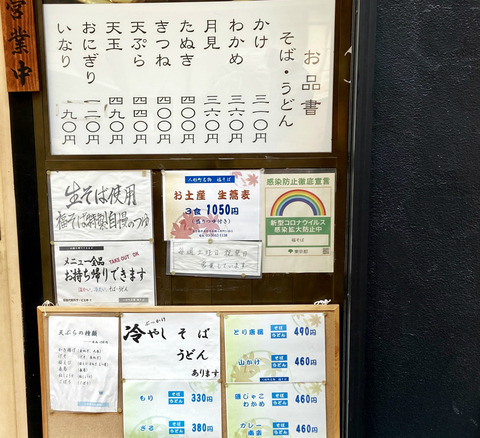 営業中
お品書
そば・うどん
かけ 三一〇円
わかめ 三六〇円
月見 三六〇円
たぬき 三六〇円
きつね 四〇〇円
天ぷら 四四〇円
天玉 四九〇円
おにぎり 一二〇円
いなり 一九〇円
生そば使用
福そば特製自慢のつゆ
メニュー全品 TAKE OUT OK
お持ち帰りできます
人形町名物 福そば
お土産 生蕎麦
3食 1050円
感染防止徹底宣言
新型コロナウイルス
感染拡大防止中
福そば
東京都
営業しています
天ぷらの種類
ぶっかけ
冷やしそば
うどん
あります
もり そば うどん 330円
ざる そば うどん 380円
とり唐揚 そば うどん 490円
山かけ そば うどん 460円
わかめ そば うどん 460円
カレー南蛮 そば うどん 460円